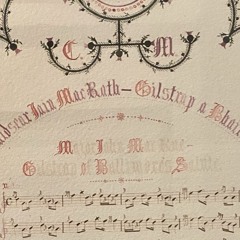 C. M.
Iain MacRath – Gilstrap a Bhail
Major John Mac Rae –
Gilstrap of Ballimore's Salute